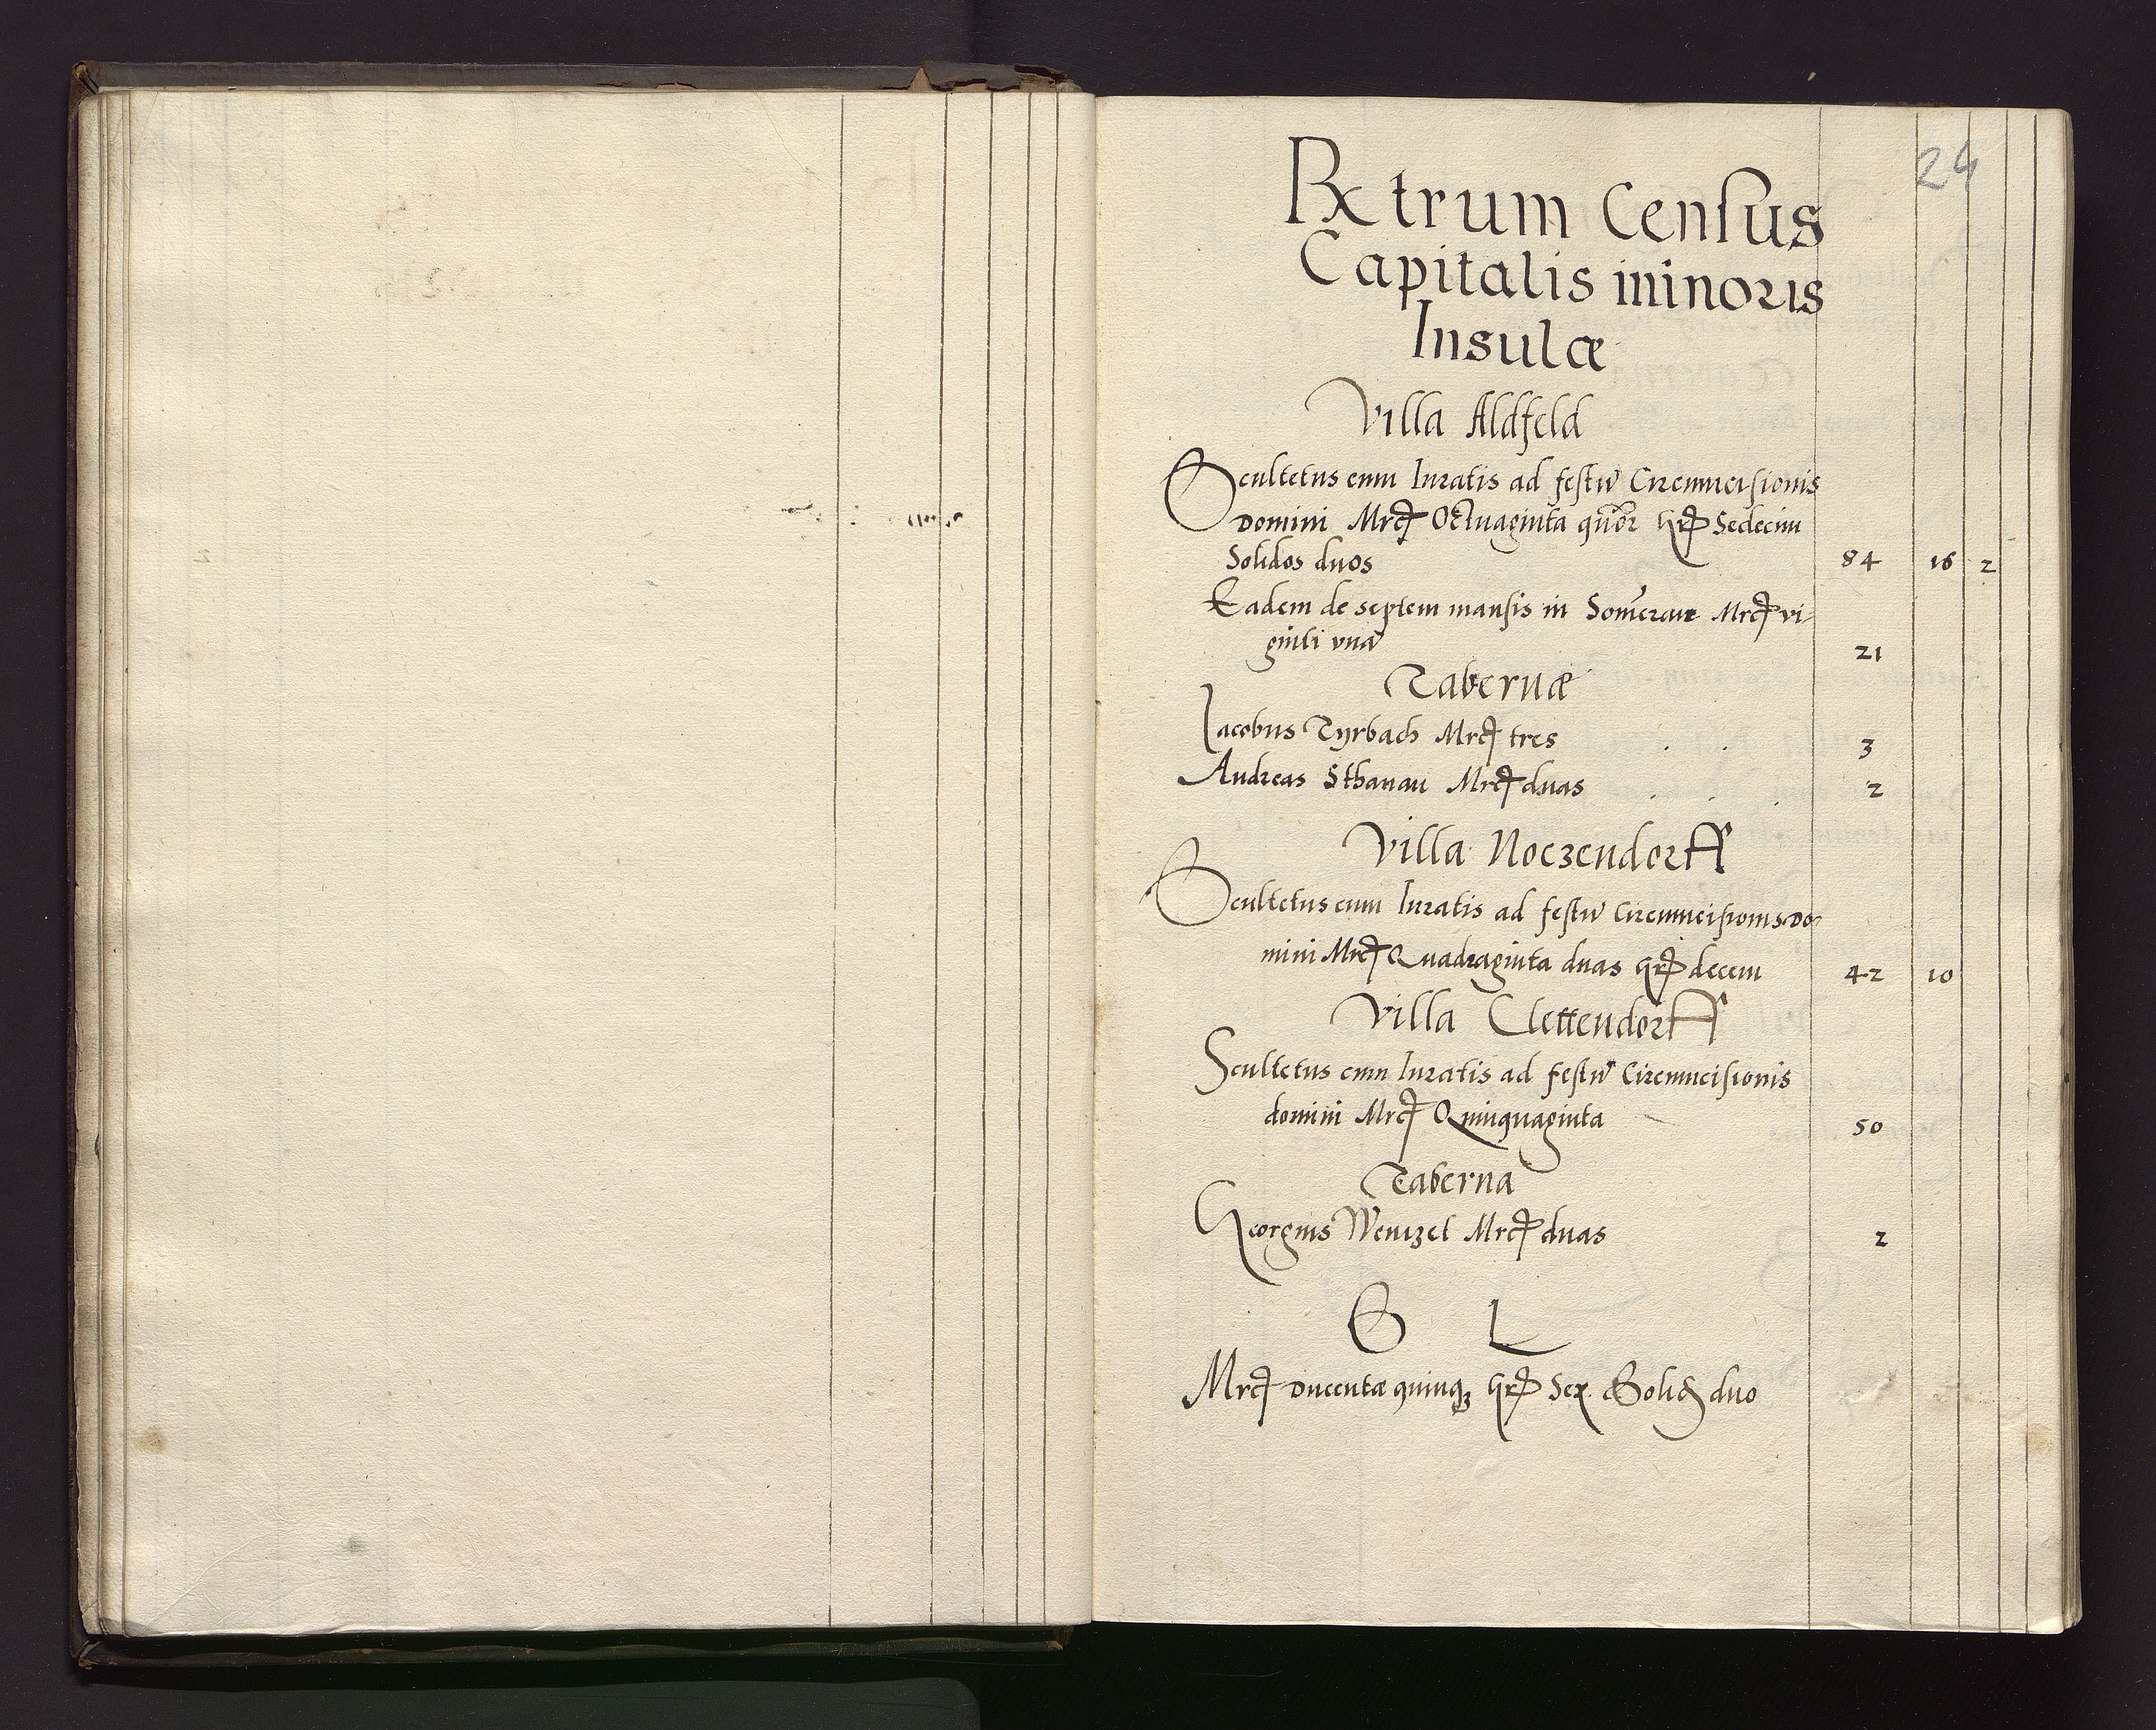 24
Rx trum Census
Capitalis minoris
Insulæ
Villa Aldfeld
Scultetus cum Iuratis ad festū Circumcisionis
Domini Mrc Octuaginta quor gr Sedecim
Solidos duos 84 16 2
Eadem de septem mansis in Somerau Mrc vi-
ginti vnā 21
Tabernæ
Iacobus Tyrbach Mrc tres . . 3
Andreas Sthanau Mrc duas . . . 2
Villa Noczendorff
Scultetus cum Iuratis ad festū Circumcisionis do-
mini Mrc Quadraginta duas gr decem 42 10
Villa Clettendorff
Scultetus cum Iuratis ad festū Circumcisionis
domini Mrc Quinquaginta 50
Taberna
Georgius Wentzel Mrc duas 2
S L
Mrc Ducentæ quinqꝫ gr Sex Solid duo